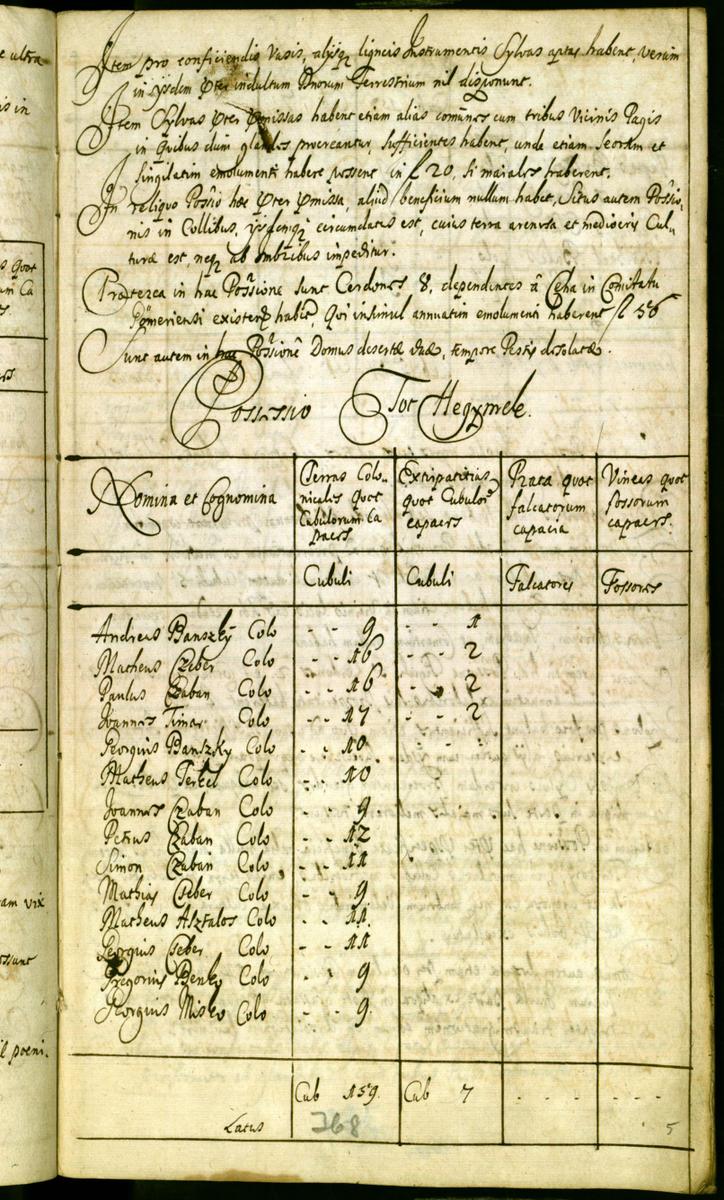 Item pro conficiendis Vasis, alijsq ligneis Instrumentis Sylvas aptas habent, verum
in ijsdem pter indultum Dnorum Terrestrium nil disponunt.
Item Sylvas pter pmissas habent etiam alias comunes cum tribus Vicinis Pagis
in quibus dum glandes procreantur, sufficientes habent, unde etiam seorsim et
singilatim emolumenti habere possent in f 20, si maiales haberent.
In reliquo Possio hæc pter pmissa, aliud beneficium nullum habet, Situs autem Possio-
nis in Collibus, ijsdemq circumdatus est, cuius terra arenosa et mediocris Cul-
turæ est, neq ab imbribus impeditur.
Præterea in hac Possione sunt Cerdones 8, dependentes â Ceha in Comitatu
existen habita, Qui insimul annuatim emolumenti haberent f 56
Sunt autem in hac Possione Domus desertæ duæ, tempore Pestis desolatæ.
Possessio Tot Hegymek.
Nomina et Cognomina
Terras Colo-
nicales quot
Cubulorum Ca
paces
Extirpatitias
quot Cubulor
capaces
Prata quot
falcatorum
capacia
Vineas quot
fossorum
capaces.
Cubuli Cubuli Falcatores Fossores
Andreas Banszky Colo - - 9 - - 1
Matheus Czeber Colo - - 16 - - 2
Paulus Czaban Colo - - 16 - - 2
Joannes Timar Colo - - 17 - - 2
Georgius Banszky Colo - - 10 - - -
Matheus Terkel Colo - - 10
Joannes Czaban Colo - - 9
Petrus Czaban Colo - - 12
Simon Czaban Colo - - 11
Mathias Czeber Colo - - 9
Matheus Asztalos Colo - - 11.
Georgius Czeber Colo - - 11
Gregorius Benko Colo - - 9
Georgius Misko Colo - - 9.
Cub 159. Cub 7 - - - - - - - -
Latus 368 5